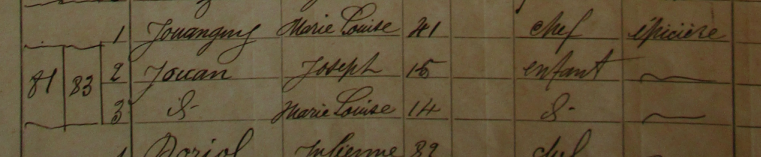 1 Jouanguy Marie Louise 41 chef épicière
81 83 2 Jouan Joseph 15 enfant
3 d- Marie Louise 14 d-
1 Doriol Julienne 89 chef